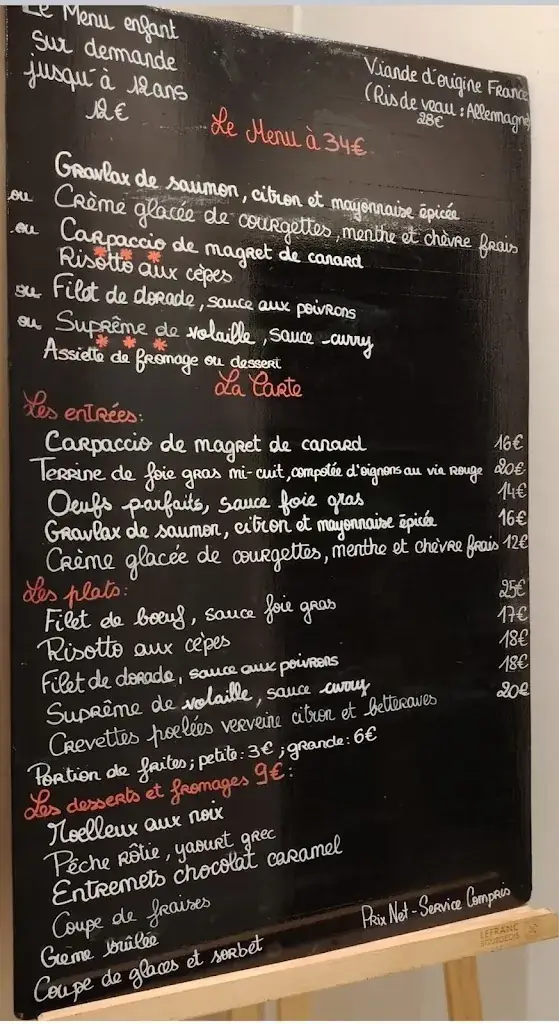 Le Menu enfant
sur demande
jusqu'à 12ans
12€
Viande d'origine France
(Ris de veau : Allemagne)
28€
Le Menu à 34€
Gravlax de saumon, citron et mayonnaise épicée
ou Crème glacée de courgettes, menthe et chèvre frais
ou Carpaccio de magret de canard
* * *
Risotto aux cèpes
ou Filet de dorade, sauce aux poivrons
ou Suprême de volaille, sauce curry
* * *
Assiette de fromage ou dessert
La Carte
Les entrées:
Carpaccio de magret de canard 16€
Terrine de foie gras mi-cuit, compotée d'oignons au vin rouge 20€
Oeufs parfaits, sauce foie gras 14€
Gravlax de saumon, citron et mayonnaise épicée 16€
Crème glacée de courgettes, menthe et chèvre frais 12€
Les plats:
Filet de boeuf, sauce foie gras 25€
Risotto aux cèpes 17€
Filet de dorade, sauce aux poivrons 18€
Suprême de volaille, sauce curry 18€
Crevettes poelées verveine citron et betteraves 20€
Portion de frites; petite: 3€; grande: 6€
Les desserts et fromages 9€:
Moelleux aux noix
Pêche rôtie, yaourt grec
Entremets chocolat caramel
Coupe de fraises
Crème brûlée
Coupe de glaces et sorbet
Prix Net - Service Compris
LEFRANC
BOURGEOIS